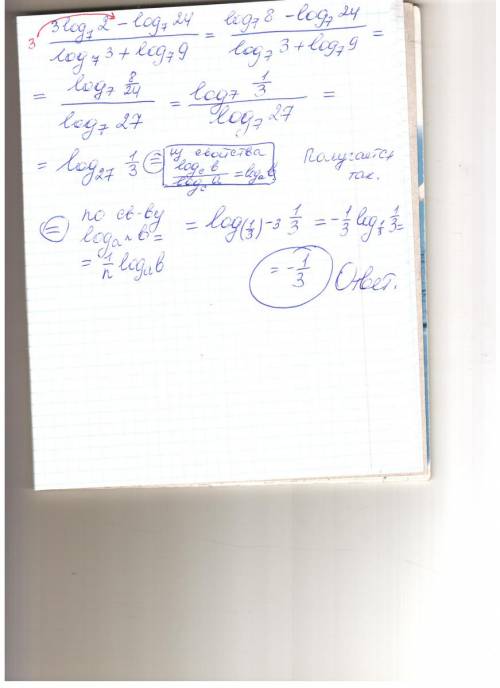 3 3log₇2 - log₇24 / log₇3 + log₇9 = log₇8 - log₇24 / log₇3 + log₇9 =
= log₇ 8/24 / log₇27 = log₇ 1/3 / log₇27 =
= log₂₇ 1/3 ⊜ из свойства log_c b / log_c a = log_a b Получается так.
⊜ по св-ву log_aⁿ b = = 1/n log_a b = log_(1/3)⁻³ 1/3 = -1/3 log_1/3 1/3 =
= -1/3 Ответ.